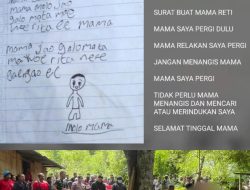 mama molo Ja'o
galo mata
rita ee mama
mama Jao galo mata
mae woe rita nee
ee
molo mama
SURAT BUAT MAMA RETI
MAMA SAYA PERGI DULU
MAMA RELAKAN SAYA PERGI
JANGAN MENANGIS MAMA
MAMA SAYA PERGI
TIDAK PERLU MAMA
MENANGIS DAN MENCARI
ATAU MERINDUKAN SAYA
SELAMAT TINGGAL MAMA